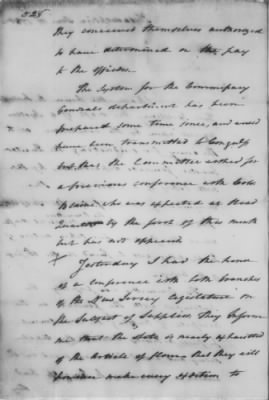 528
they conceived themselves authorized
to have determined on the pay
to the officers.
The System for the Commissary
Generals department has been
prepared some time since, and would
have been transmitted to Congress
but that the Committee wished for
a previous conference with Colo
Blaine who was expected at Head
Quarters by the first of this month
but has not appeared
Yesterday I had the honor
of a conference with both branches
of the New Jersey Legislature on
the Subject of Supplies They inform
me that the State is nearly exhausted
of the Article of flour & that they will
make every exertion to